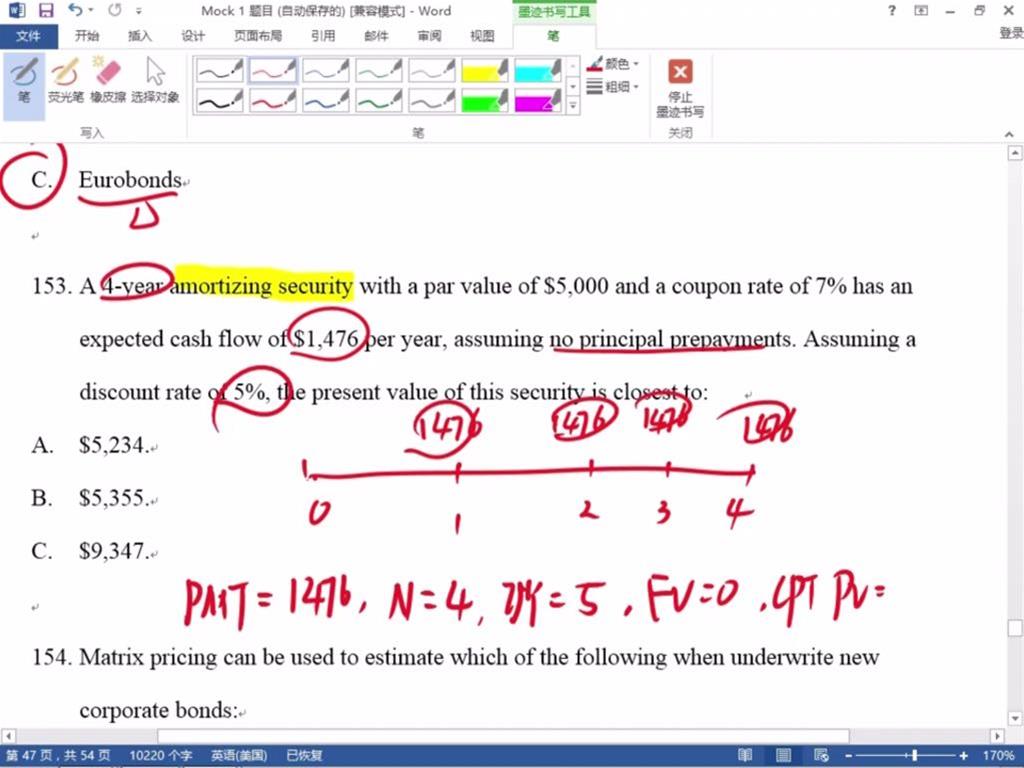 Mock 1 题目 (自动保存的) [兼容模式] - Word
墨迹书写工具
登录
文件 开始 插入 设计 页面布局 引用 邮件 审阅 视图 笔
笔 荧光笔 橡皮擦 选择对象
颜色
粗细
停止
墨迹书写
写入 笔 关闭
C. Eurobonds
153. A 4-year amortizing security with a par value of $5,000 and a coupon rate of 7% has an
expected cash flow of $1,476 per year, assuming no principal prepayments. Assuming a
discount rate of 5%, the present value of this security is closest to:
1476 1476 1476 1476
A. $5,234.
B. $5,355.
0 1 2 3 4
C. $9,347.
PMT = 1476, N = 4, I/Y = 5, FV = 0, CPT PV =
154. Matrix pricing can be used to estimate which of the following when underwrite new
corporate bonds:
第 47 页，共 54 页 10220 个字 英语(美国) 已恢复 170%